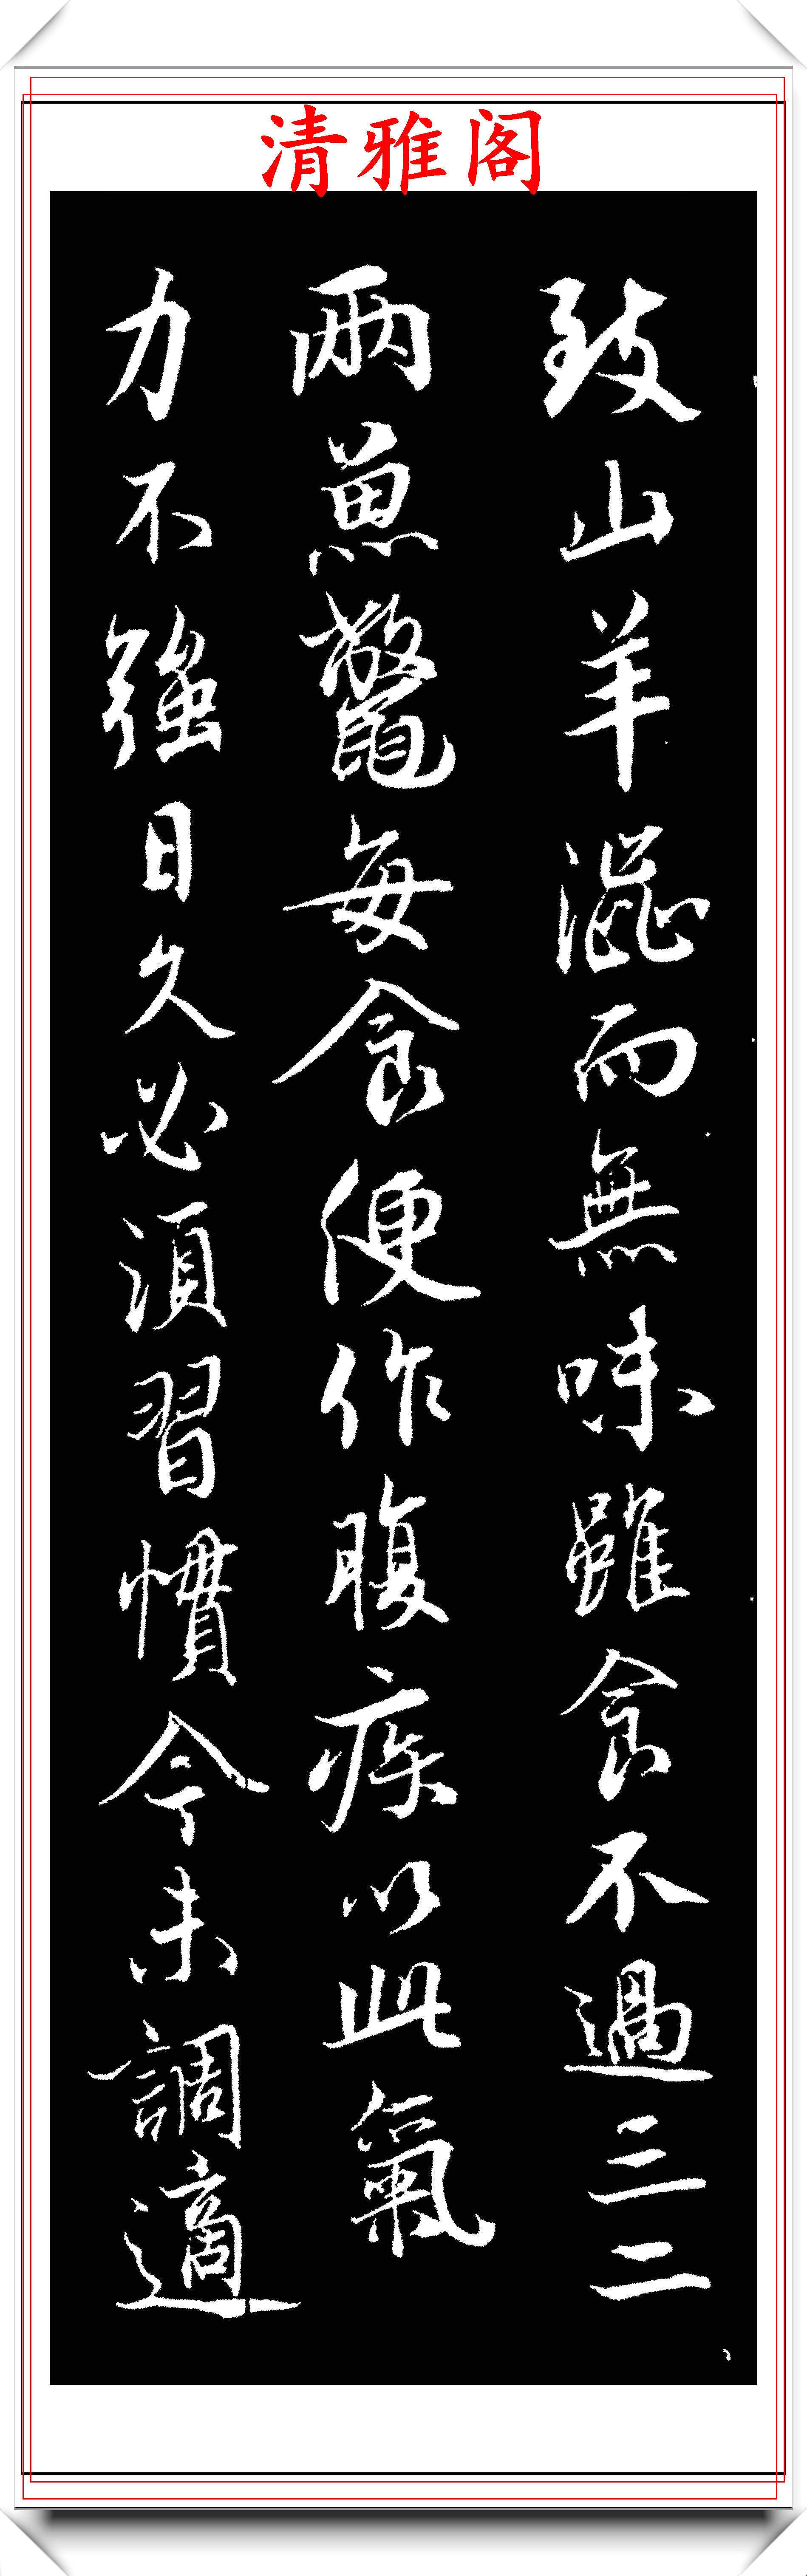 清雅阁
致山羊澀而無味雖食不過三二
兩魚鼈每食便作腹疾以此氣
力不強日久必須習慣今未調適